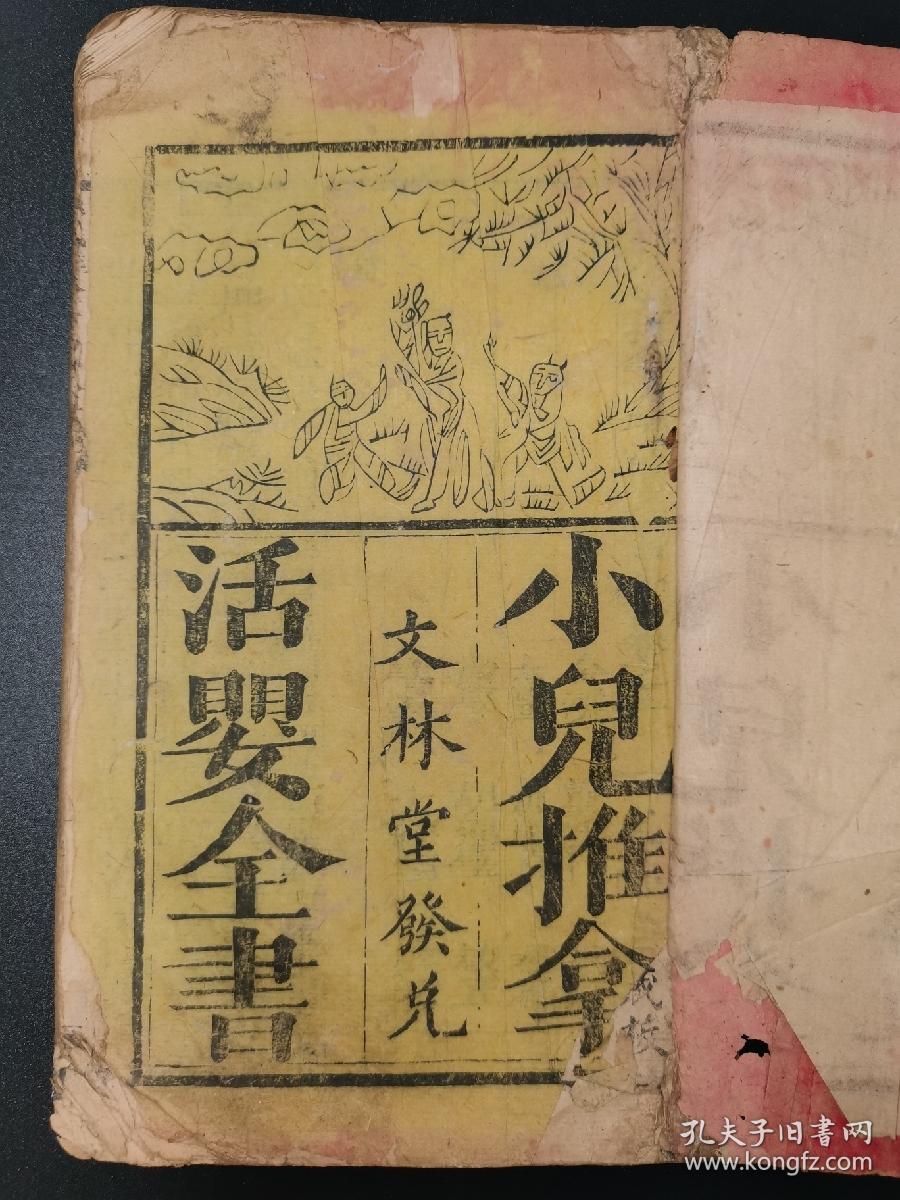 小兒推拿
文林堂發兑
活嬰全書
孔夫子旧书网
www.kongfz.com